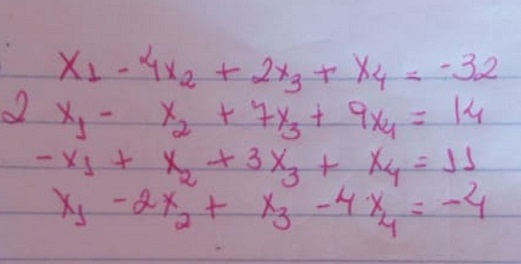 x₁ - 4x₂ + 2x₃ + x₄ = -32
2 x₁ - x₂ + 7x₃ + 9x₄ = 14
-x₁ + x₂ + 3x₃ + x₄ = 11
x₁ - 2x₂ + x₃ - 4x₄ = -4